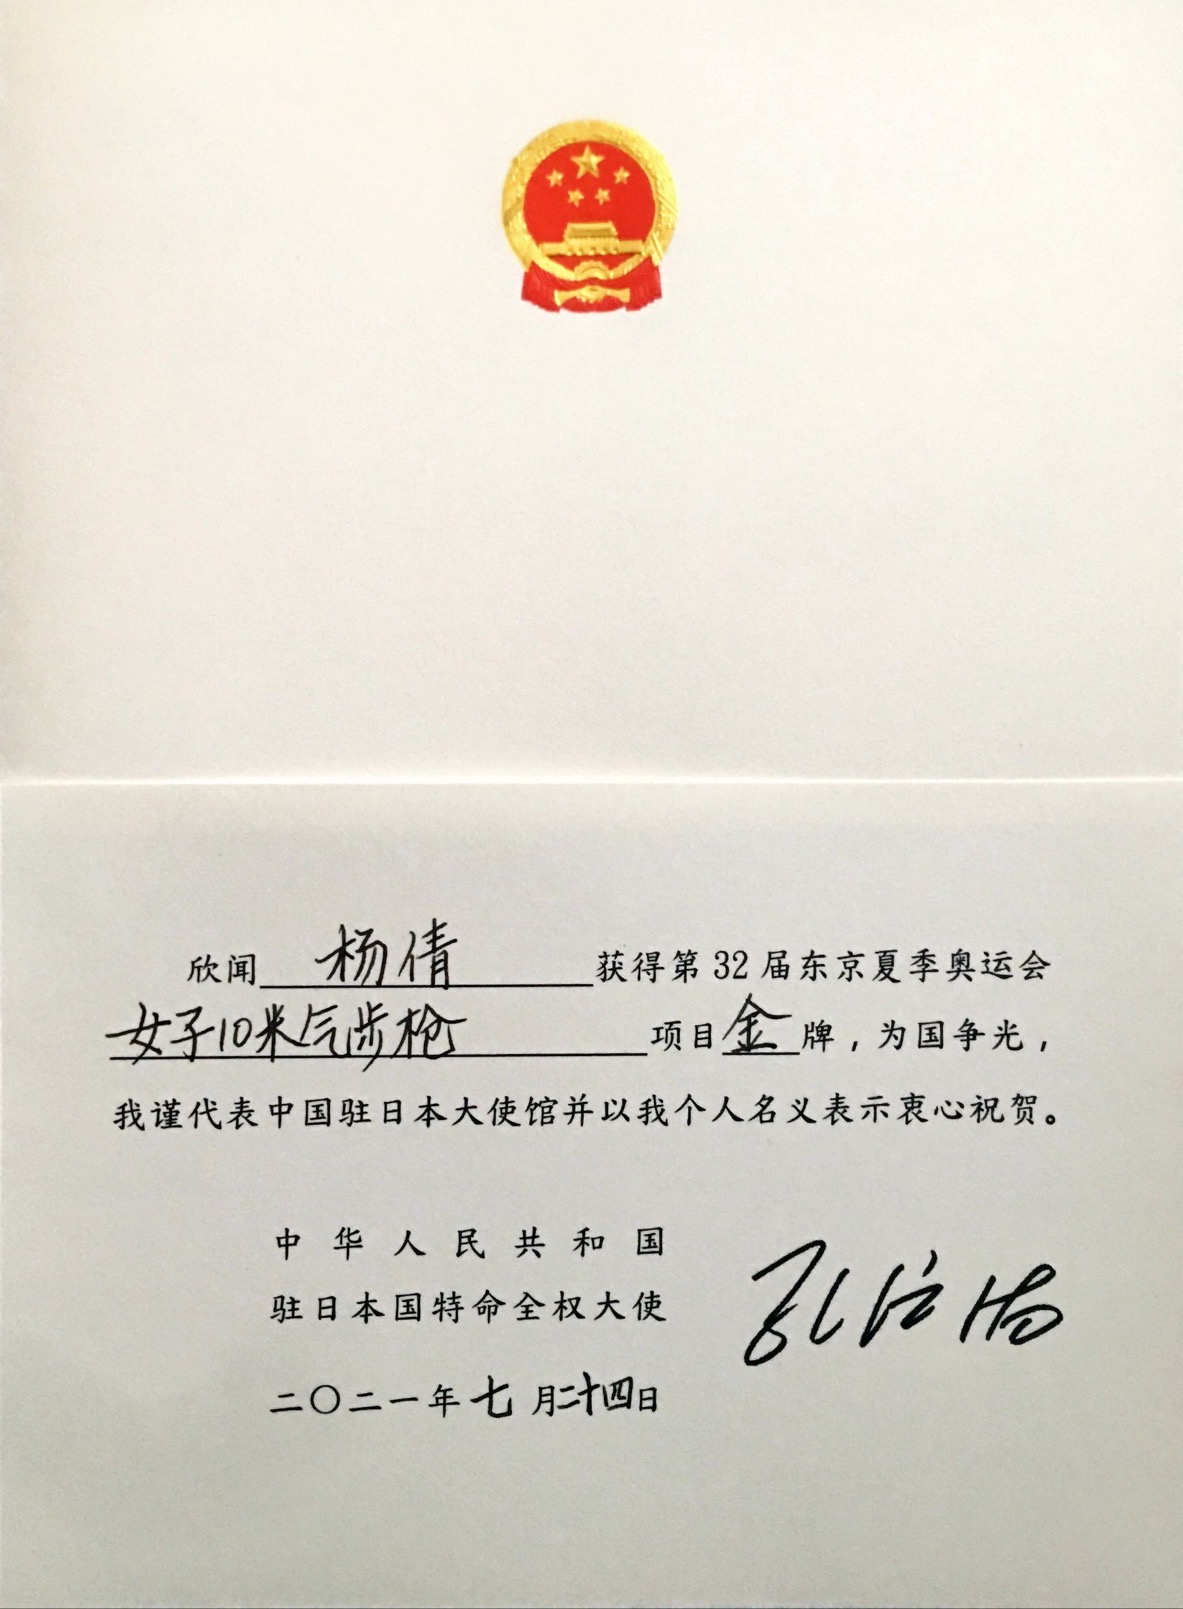 欣闻 杨倩 获得第 32 届东京夏季奥运会
女子10米气步枪 项目 金 牌，为国争光，
我谨代表中国驻日本大使馆并以我个人名义表示衷心祝贺。
中华人民共和国
驻日本国特命全权大使
孔铉佑
二〇二一年七月二十四日